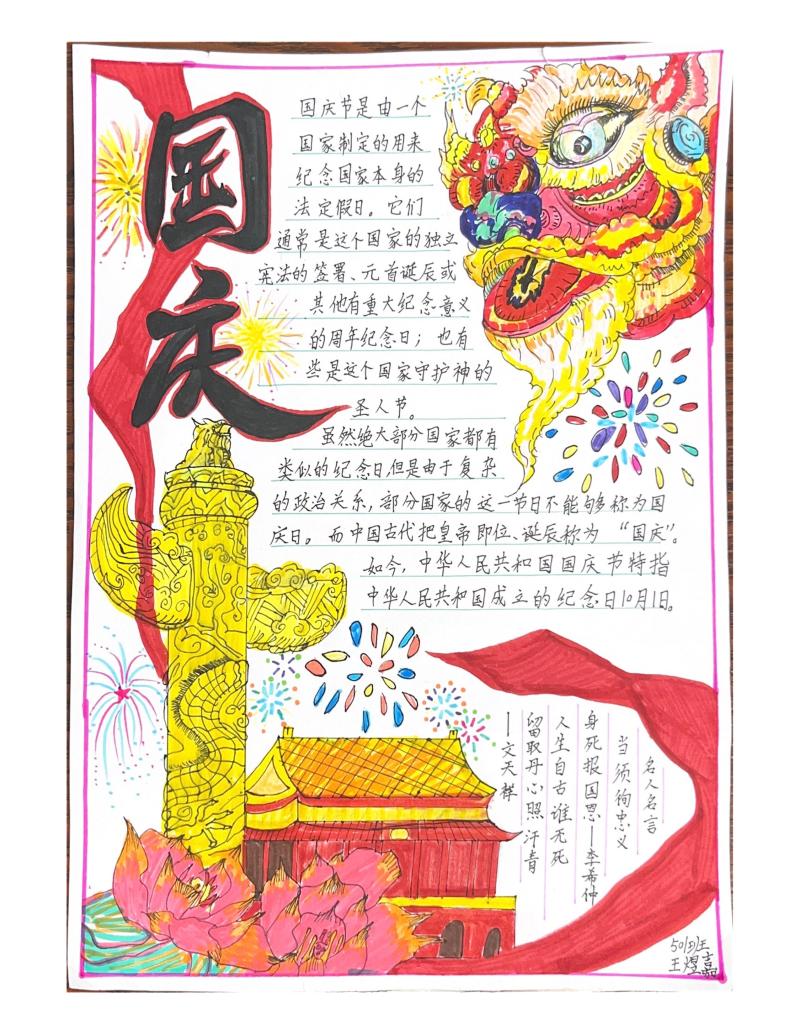 国庆
国庆节是由一个
国家制定的用来
纪念国家本身的
法定假日。它们
通常是这个国家的独立
宪法的签署、元首诞辰或
其他有重大纪念意义
的周年纪念日；也有
些是这个国家守护神的
圣人节。
虽然绝大部分国家都有
类似的纪念日,但是由于复杂
的政治关系，部分国家的这一节日不能够称为国
庆日。而中国古代把皇帝即位、诞辰称为“国庆”。
如今，中华人民共和国国庆节特指
中华人民共和国成立的纪念日10月1日。
名人名言
当须徇忠义
身死报国恩—李希仲
人生自古谁无死
留取丹心照汗青
—文天祥
501班
王煜嘉